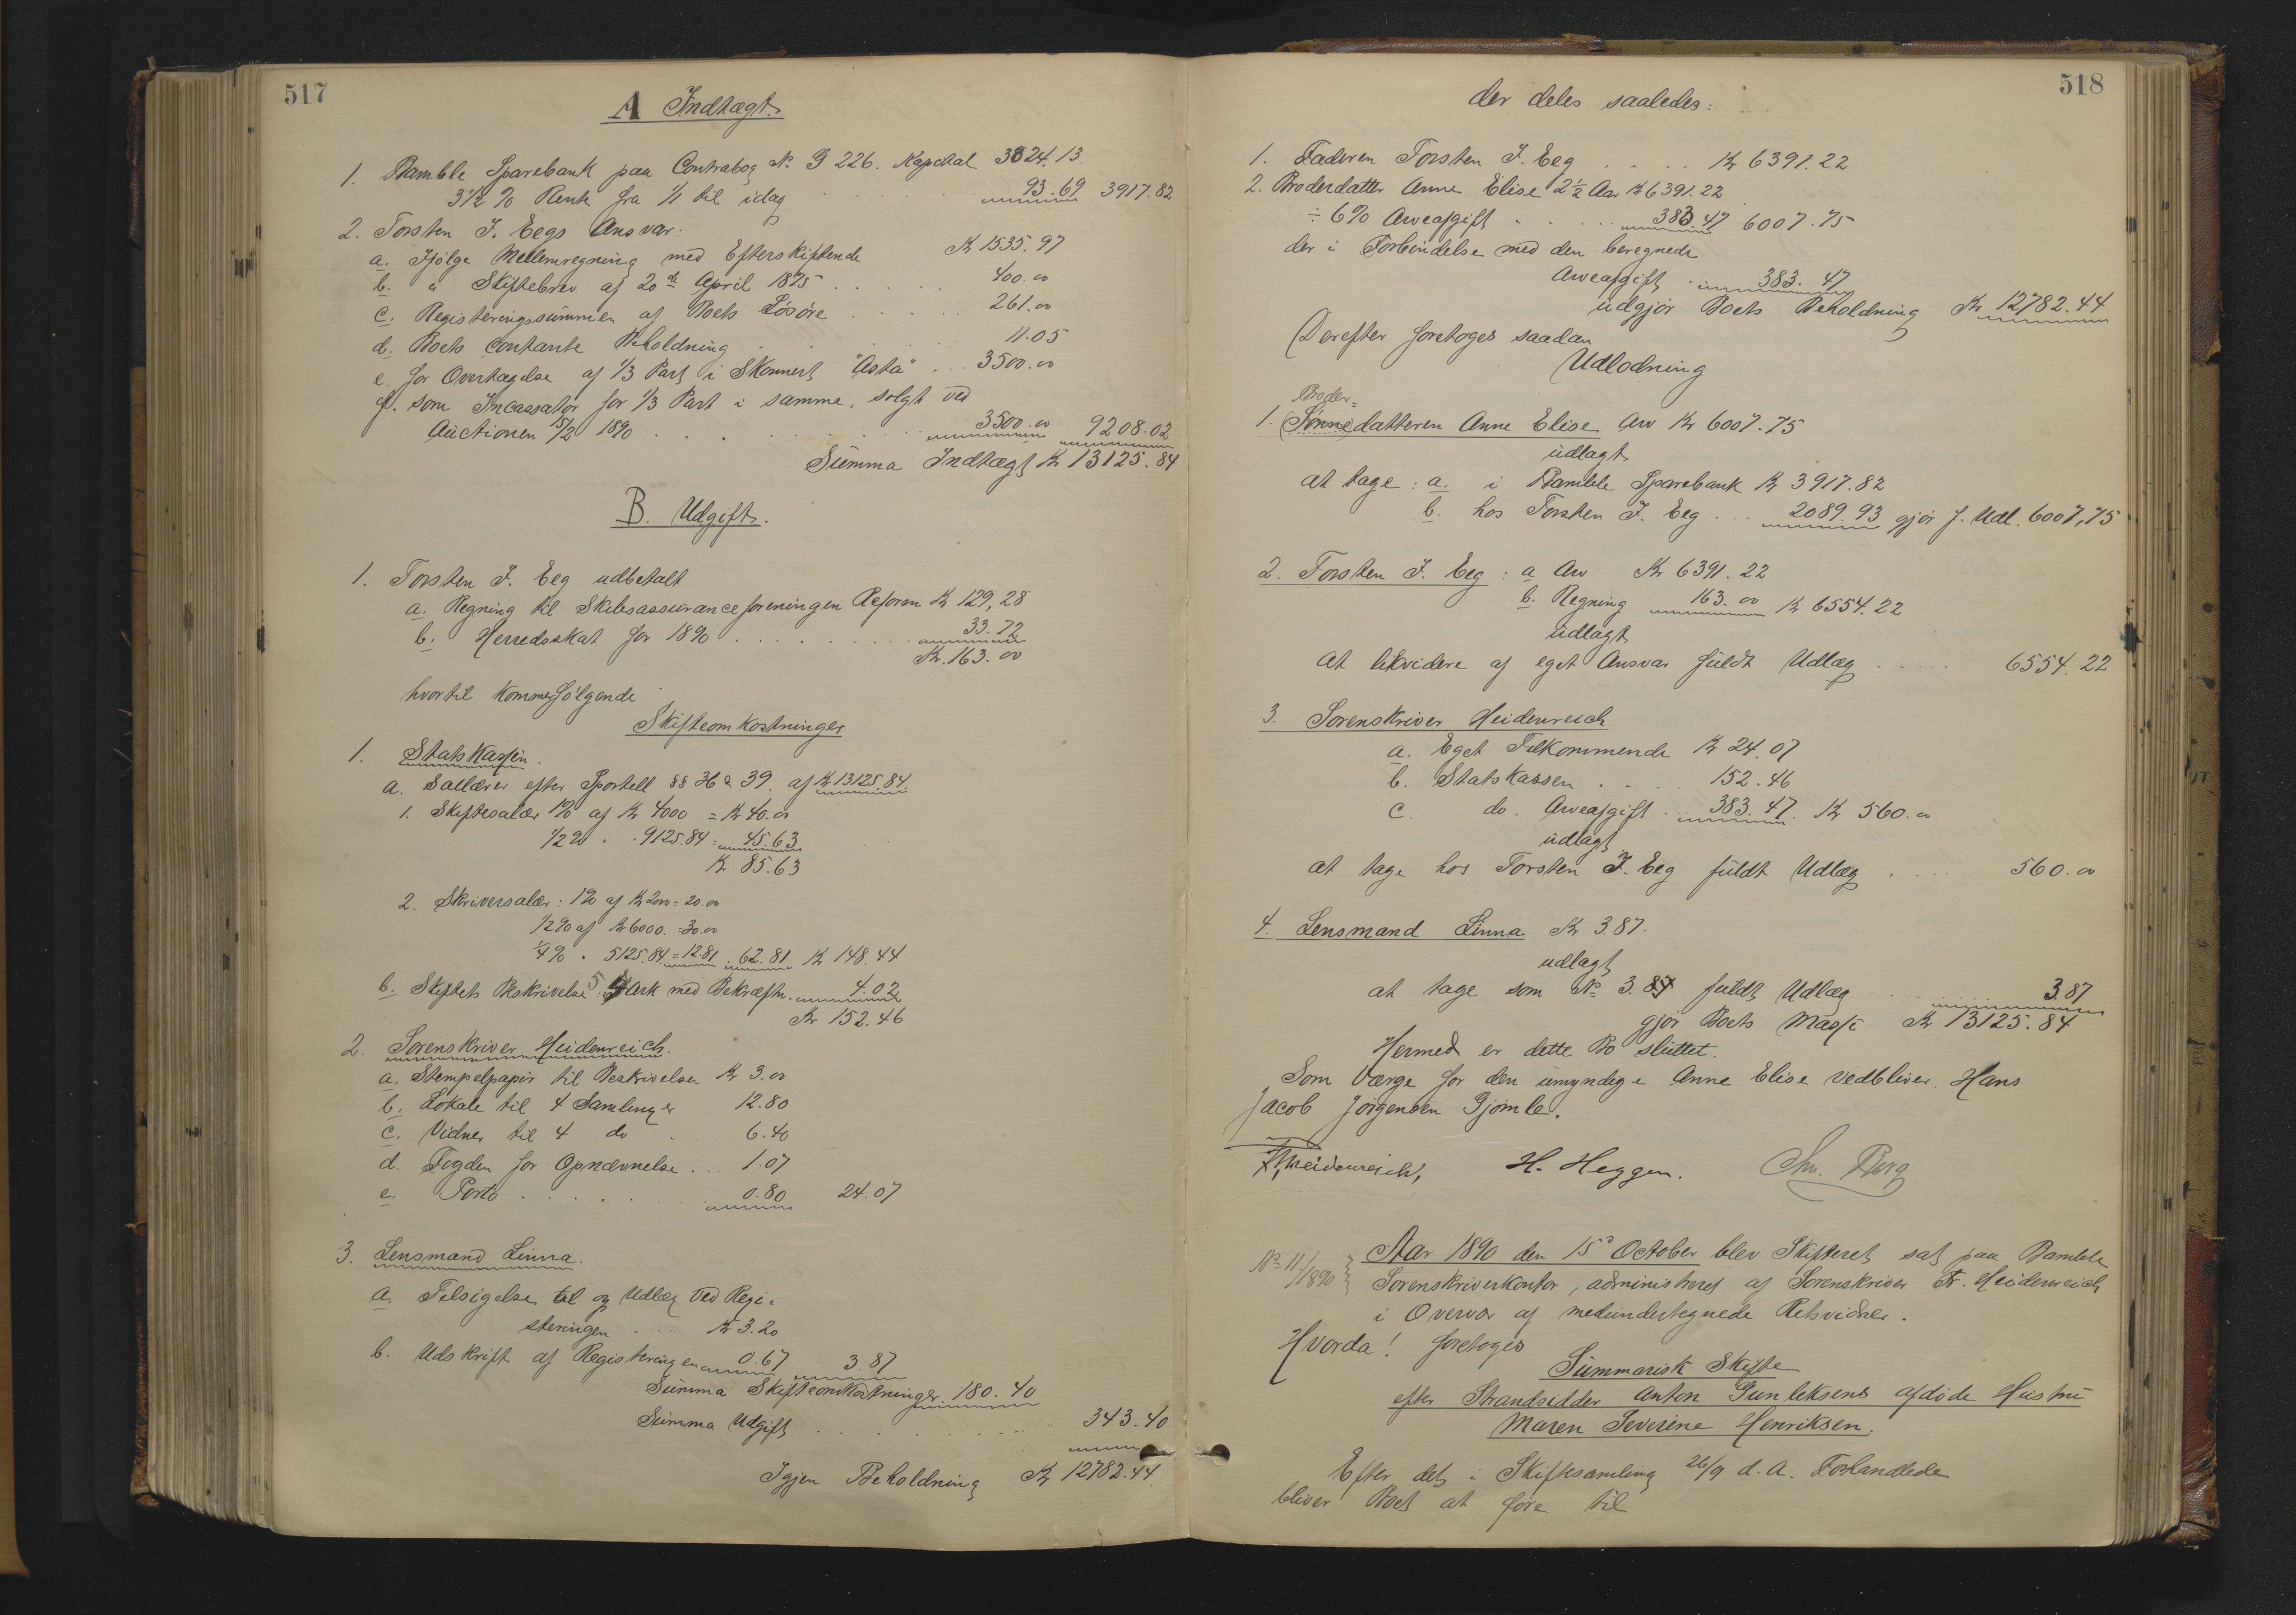 517
A Indtægt.
1. Bamble Sparebank paa Contrabog No G 226. Kapital 3824.13.
3 1/2 % Rente fra 1/1 til idag 93.69 3917.82
2. Torsten J. Eegs Ansvar:
a. Ifølge Mellemregning med Efterskiftende Kr 1535.97
b. " Skiftebrev af 20de April 1875 400.00
c. Registeringssummen af Boets Løsøre 261.00
d. Boets Contante Beholdning 11.05
e. for Overtagelse af 1/3 Part i Skonnert "Asta" 3500.00
f. som Incassator for 1/3 Part i samme, solgt ved
Auctionen 15/2 1890 3500.00 9208.02
Summa Indtægt Kr 13125.84
B. Udgift.
1. Torsten J. Eeg udbetalt
a. Regning til Skibsassuranceforeningen Reform Kr 129,28
b. Herredsskat for 1890 33.72
Kr. 163.00
hvortil kommer følgende
Skifteomkostninger
1. Statskassen.
a. Sallærer efter Sportell §§ 36 & 39. af Kr 13125.84.
1. Skiftesalær 1% af Kr 4000 = Kr 40.00
1/2 % " 9125.84 = 45.63
Kr 85.63
2. Skriversalær: 1% af Kr 2000 = 20.00
1/2 % af Kr 6000. = 30.00
1/4 % " 5125.84 = 12.81 62.81 Kr 148.44
b. Skiftets Beskrivelse 5 Ark med Bekræftn. 4.02
Kr 152.46
2. Sorenskriver Heidenreich.
a. Stempelpapir til Beskrivelsen Kr 3.00
b. Lokale til 4 Samlinger 12.80
c. Vidner til 4 do 6.40
d. Fogden for Opnævnelse 1.07
e. Porto 0.80 24.07
3. Lensmand Linna.
a. Tilsigelse til og Udlæg ved Regi=
steringen Kr 3.20
b. Udskrift af Registeringen 0.67 3.87
Summa Skifteomkostninger 180.40
Summa Udgift 343.40
Igjen Beholdning Kr 12782.44.
518
der deles saaledes:
1. Faderen Torsten J. Eeg Kr 6391.22
2. Broderdatter Anne Elise 2 1/2 Aar Kr 6391.22
÷ 6% Arveafgift 383.47 6007.75
der i Forbindelse med den beregnede
Arveafgift 383.47
udgjør Boets Beholdning Kr 12782.44
Derefter foretoges saadan
Udlodning
Broder=
1. (Sønne)datteren Anne Elise Arv Kr 6007.75
udlagt
at tage: a. i Bamble Sparebank Kr 3917.82
b. hos Torsten J. Eeg 2089.93 gjør f. Udl. 6007,75
2. Torsten J. Eeg: a Arv Kr 6391.22
b. Regning 163.00 Kr 6554.22
udlagt
at likvidere af eget Ansvar fuldt Udlæg 6554.22
3. Sorenskriver Heidenreich
a. Eget Tilkommende Kr 24.07
b. Statskassen 152.46
c. do. Arveafgift 383.47. Kr 560.00
udlagt
at tage hos Torsten J. Eeg fuldt Udlæg 560.00
4. Lensmand Linna Kr 3.87.
udlagt
at tage som No 3. fuldt Udlæg 3.87
gjør Boets Masse Kr 13125.84
Hermed er dette Bo sluttet.
Som Værge for den umyndige Anne Elise vedbliver Hans
Jacob Jørgensen Gjømle.
Fr. Heidenreich, H. Heggen. Berg
No 11/1890 Aar 1890 den 15de October blev Skifteret sat paa Bamble
Sorenskriverkontor, administreret af Sorenskriver Fr. Heidenreich
i Overvær af medundertegnede Retsvidner.
Hvorda! foretoges
Summarisk Skifte
efter Strandsidder Anton Gunleksens afdøde Hustru
Maren Severine Henriksen.
Efter det i Skiftesamling 26/9 d. A. Forhandlede
bliver Boet at føre til